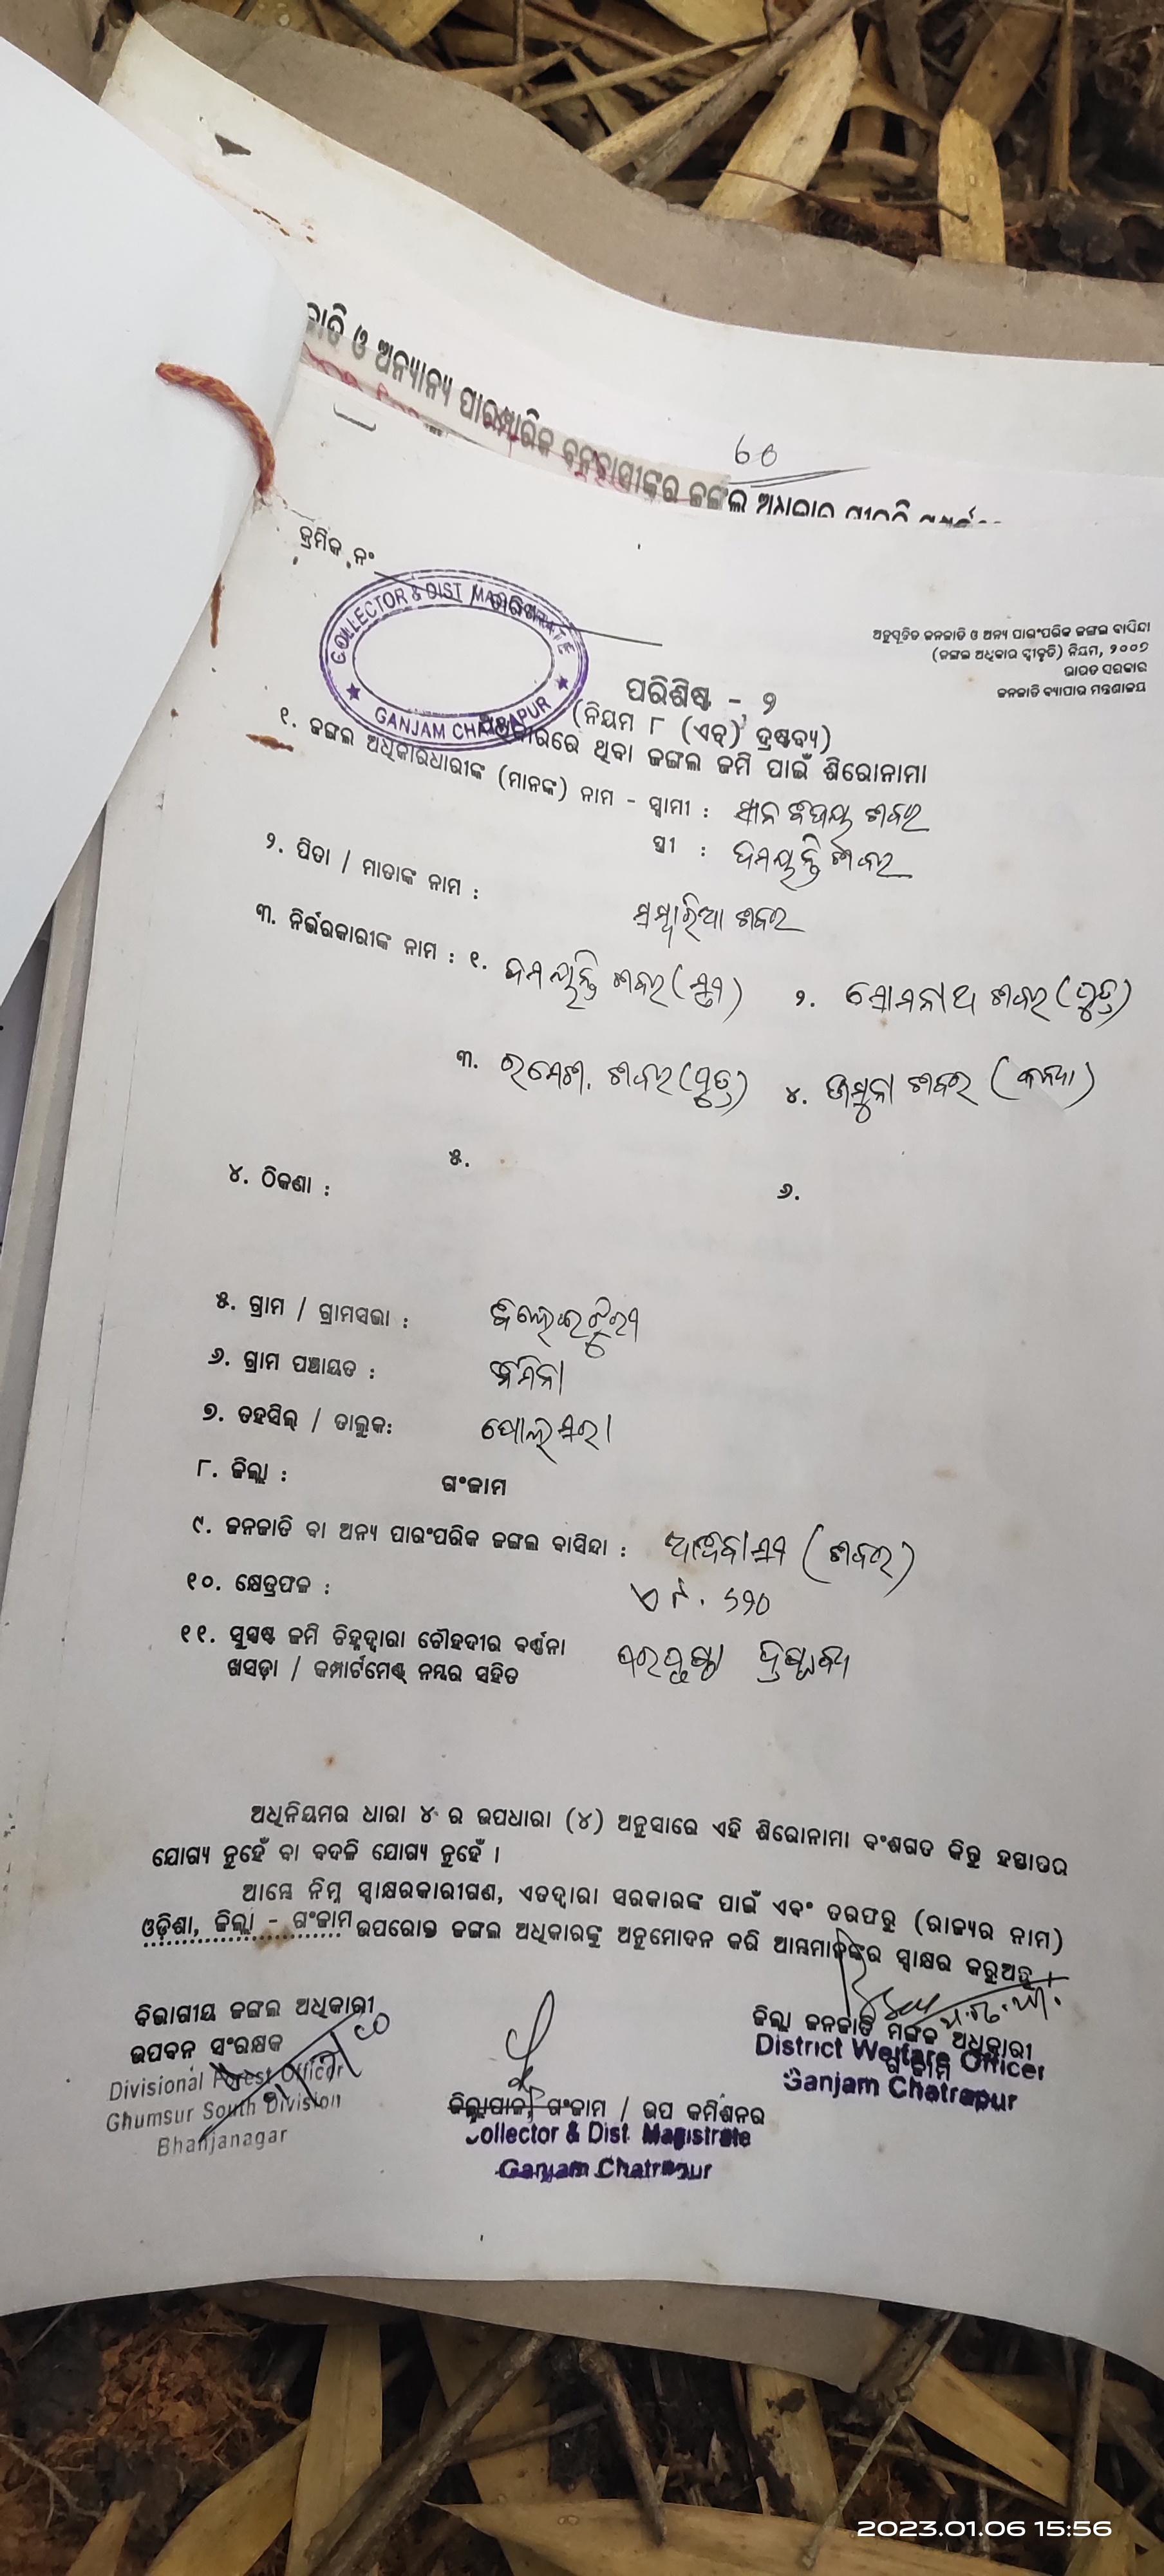 ଜାତି ଓ ଅନ୍ୟାନ୍ୟ ପାରମ୍ପାରିକ ବନବାସୀଙ୍କର ଜଙ୍ଗଲ ଅଧିକାର
60
କ୍ରମିକ ନଂ
COLLECTOR & DIST MAGISTRATE
GANJAM CHATRAPUR
ଅନୁସୂଚିତ ଜନଜାତି ଓ ଅନ୍ୟ ପାରଂପରିକ ଜଙ୍ଗଲ ବାସିନ୍ଦା
(ଜଙ୍ଗଲ ଅଧିକାର ସ୍ୱୀକୃତି) ନିୟମ, ୨୦୦୭
ଭାରତ ସରକାର
ଜନଜାତି ବ୍ୟାପାର ମନ୍ତ୍ରଣାଳୟ
ପରିଶିଷ୍ଟ - ୨
(ନିୟମ ୮ (ଏଚ୍) ଦ୍ରଷ୍ଟବ୍ୟ)
ଅଧିକାରରେ ଥିବା ଜଙ୍ଗଲ ଜମି ପାଇଁ ଶିରୋନାମା
୧. ଜଙ୍ଗଲ ଅଧିକାରଧାରୀଙ୍କ (ମାନଙ୍କ) ନାମ - ସ୍ୱାମୀ : ସାନ ବିଜୟ ଶବର
ସ୍ତ୍ରୀ : ଦମୟନ୍ତି ଶବର
୨. ପିତା / ମାତାଙ୍କ ନାମ : ଶବର
୩. ନିର୍ଭରକାରୀଙ୍କ ନାମ : ୧. ଦମୟନ୍ତି ଶବର (ସ୍ତ୍ରୀ) ୨. ସୋମନାଥ ଶବର (ପୁତ୍ର)
୩. ରମେଶ. ଶବର (ପୁତ୍ର) ୪. ଯମୁନା ଶବର (କନ୍ୟା)
୫. ୬.
୪. ଠିକଣା :
୫. ଗ୍ରାମ / ଗ୍ରାମସଭା :
୬. ଗ୍ରାମ ପଞ୍ଚାୟତ :
୭. ତହସିଲ୍ / ତାଲୁକ: ପୋଲସରା
୮. ଜିଲ୍ଲା : ଗଂଜାମ
୯. ଜନଜାତି ବା ଅନ୍ୟ ପାରଂପରିକ ଜଙ୍ଗଲ ବାସିନ୍ଦା : ଆଦିବାସୀ (ଶବର)
୧୦. କ୍ଷେତ୍ରଫଳ :
୧୧. ସୁସ୍ପଷ୍ଟ ଜମି ଚିହ୍ନଦ୍ୱାରା ଚୌହଦୀର ବର୍ଣ୍ଣନା
ଖସଡ଼ା / କମ୍ପାର୍ଟମେଣ୍ଟ୍ ନମ୍ବର ସହିତ ପରପୃଷ୍ଠା ଦ୍ରଷ୍ଟବ୍ୟ
ଅଧିନିୟମର ଧାରା ୪ ର ଉପଧାରା (୪) ଅନୁସାରେ ଏହି ଶିରୋନାମା ବଂଶଗତ କିନ୍ତୁ ହସ୍ତାନ୍ତର
ଯୋଗ୍ୟ ନୁହେଁ ବା ବଦଳି ଯୋଗ୍ୟ ନୁହେଁ ।
ଆମ୍ଭେ ନିମ୍ନ ସ୍ୱାକ୍ଷରକାରୀଗଣ, ଏତଦ୍ୱାରା ସରକାରଙ୍କ ପାଇଁ ଏବଂ ତରଫରୁ (ରାଜ୍ୟର ନାମ)
ଓଡ଼ିଶା, ଜିଲ୍ଲା - ଗଂଜାମ ଉପରୋକ୍ତ ଜଙ୍ଗଲ ଅଧିକାରଙ୍କୁ ଅନୁମୋଦନ କରି ଆମ୍ଭମାନଙ୍କର ସ୍ୱାକ୍ଷର କରୁଅଛୁ ।
ବିଭାଗୀୟ ଜଙ୍ଗଲ ଅଧିକାରୀ
ଉପବନ ସଂରକ୍ଷକ
Divisional Forest Officer
Ghumsur South Division
Bhanjanagar
ଜିଲ୍ଲାପାଳ, ଗଂଜାମ / ଉପ କମିଶନର
Collector & Dist. Magistrate
Ganjam Chatrapur
ଜିଲ୍ଲା ଜନଜାତି ମଙ୍ଗଳ ଅଧିକାରୀ
ଗଂଜାମ
District Welfare Officer
Ganjam Chatrapur
2023.01.06 15:56